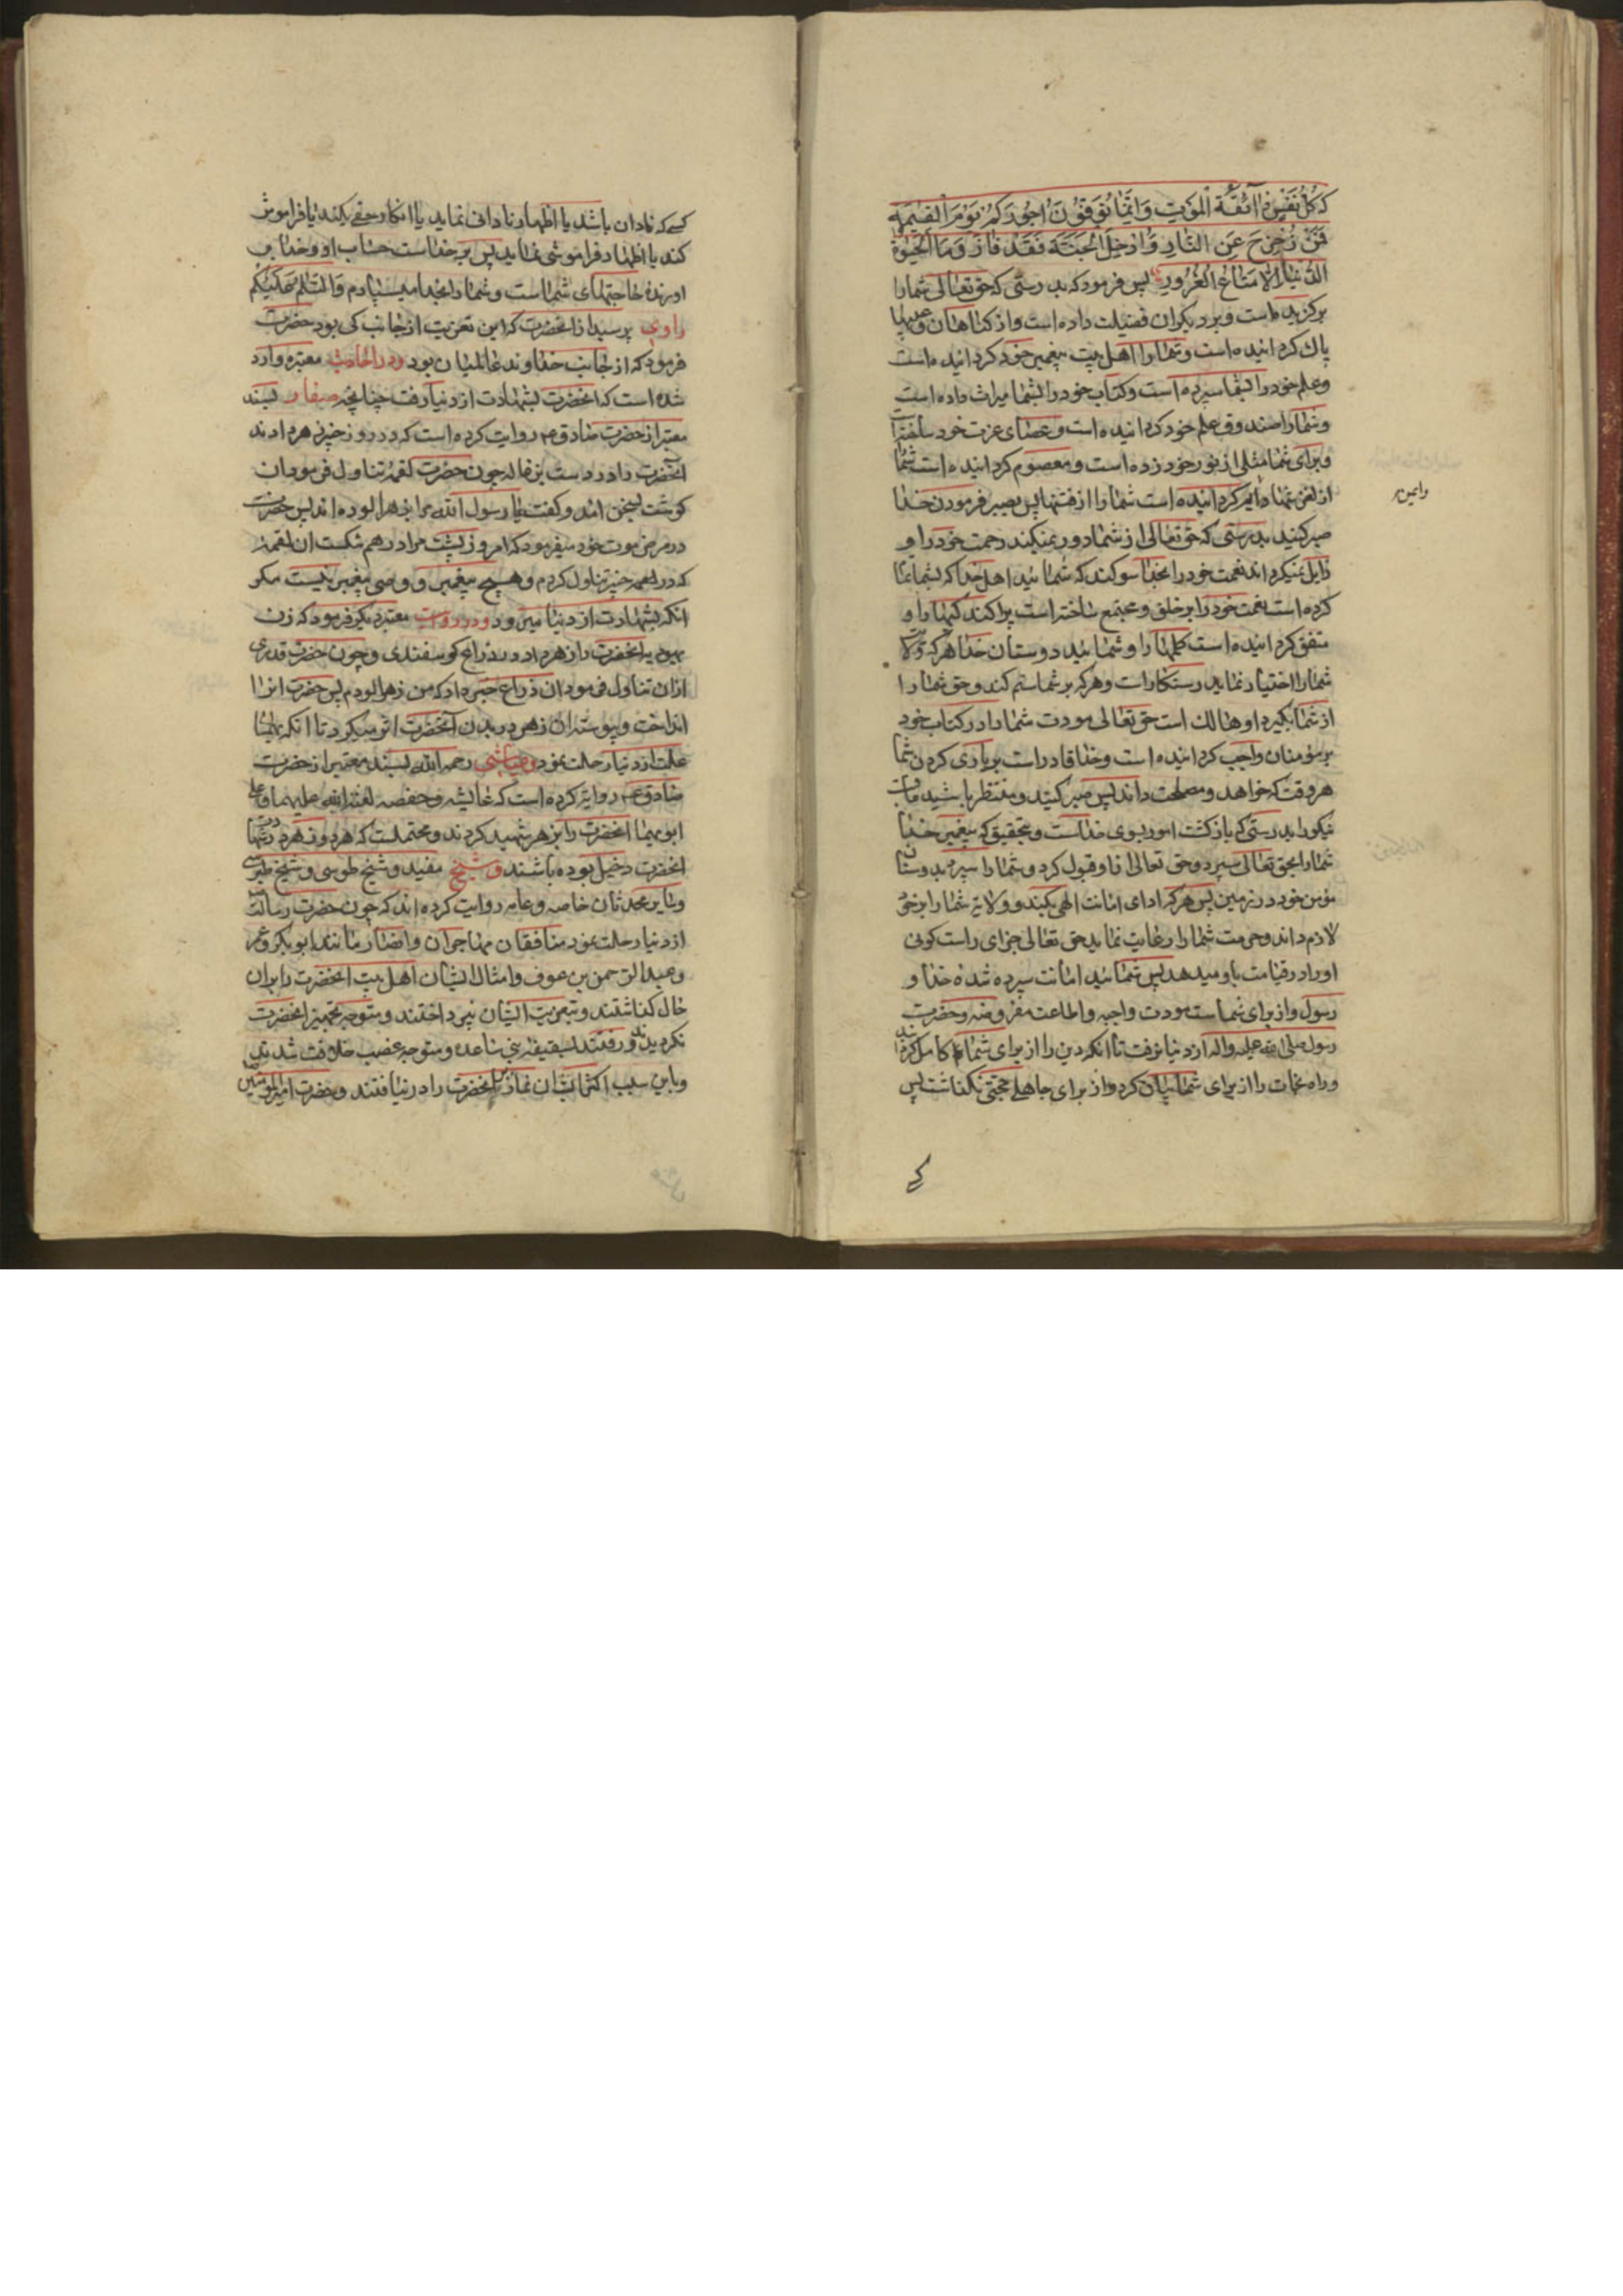 که کُلُّ نَفْسٍ ذٰائِقَةُ الْمَوْتِ وَاِنَّمٰا تُوَفَّوْنَ اُجُورَکُمْ یَوْمَ الْقِیٰمَةِ
فَمَنْ زُحْزِحَ عَنِ النّٰارِ وَاُدْخِلَ الْجَنَّةَ فَقَدْ فٰازَ وَمَا الْحَیٰوةُ
الدُّنْیٰا اِلّٰا مَتٰاعُ الْغُرُورِ پس فرمود که بدرستی که حق تعالی شما را
برکزیده است وبر دیکران فضیلت داده است واز کناهان و عیبها
پاک کردانیده است وشما را اهل بیت پیغمبر خود کردانیده است
وعلم خود را بشما سپرده است وکتاب خود را بشما میراث داده است
وشما را صندوق علم خود کردانیده است وعصای عزت خود ساخته است
وبرای شما مثلی از نور خود زده است ومعصوم کردانیده است شما
از لغزشها وایمن کردانیده است شما را از فتنها پس بصبر فرمودن خدا
وایمن
صبر کنید بدرستی که حق تعالی از شما دور نمیکند رحمت خود را و
زایل نمیکرداند نعمت خود را بخدا سوکند که شمائید اهل خدا که بشما تمام
کرده است نعمت خود را بر خلق ومجتمع ساخته است پراکندکیها را و
متفق کردانیده است کلمها را وشمائید دوستان خدا هرکه ولا
شما را اختیار نماید رستکار است وهرکه بر شما ستم کند وحق شما را
از شما بکیرد او هالک است حق تعالی مودت شما را در کتاب خود
بر مؤمنان واجب کردانیده است وخدا قادر است بر یاری کردن شما
هر وقت که خواهد ومصلحت داند پس صبر کنید ومنتظر باشید
نیکو را بدرستی که بازکشت امور بسوی خداست وبتحقیق که پیغمبر خدا
شما را بحق تعالی سپرد وحق تعالی از او قبول کرد وشما را سپرد بدوستان
مؤمن خود در زمین پس هرکه ادای امانت الهی بکند وولایة شما را بر خود
لازم داند وحرمت شما را رعایت نماید حق تعالی جزای راست کوئی
او را در قیامت باو میدهد پس شمائید امانت سپرده شده خدا و
رسول واز برای شماست مودت واجبه واطاعت مفروضه وحضرت
رسول صلی الله علیه واله از دنیا نرفت تا آنکه دین را از برای شما کامل کردانید
وراه نجات را از برای شما بیان کرد واز برای جاهلی حجتی نکذاشت پس
کسی که نادان باشد یا اظهار نادانی نماید یا انکار حقی بکند یا فراموش
کند یا اظهار فراموشی نماید پس بر خداست حساب او وخدا بر
اورندهٔ حاجتهای شماست وشما را بخدا میسپارم وَالسَّلٰامُ عَلَیْکُمْ
راوی پرسید از انحضرت که این تعزیت از جانب کی بود حضرت
فرمود که از جانب خداوند عالمیان بود ودر احادیث معتبره وارد
شده است که انحضرت بشهادت از دنیا رفت چنانچه صفار بسند
معتبر از حضرت صادق ع روایت کرده است که در روز خیبر زهر دادند
انحضرت را در دست بزغاله چون حضرت لقمهٔ تناول فرمود ان
کوشت بسخن امد وکفت یا رسول الله مرا بزهر الوده اند پس حضرت
در مرض موت خود میفرمود که امروز پشت مرا درهم شکست ان لقمهٔ
که در خیبر تناول کردم وهیچ پیغمبر و وصی پیغمبر نیست مکر
آنکه بشهادت از دنیا میرود ودر روایت معتبر دیکر فرمود که زن
یهودیه انحضرت را زهر داد در ذراع کوسفندی وچون حضرت قدری
ازان تناول فرمود ان ذراع خبر داد که من زهر الودم پس حضرت انرا
انداخت وپیوسته ان زهر در بدن آنحضرت اثر میکرد تا انکه بهمان
علت از دنیا رحلت نمود وعیاشی رحمه الله بسند معتبر از حضرت
صادق ع روایة کرده است که عایشه وحفصه لعنة الله علیهما وعلی
ابویهما انحضرت را بزهر شهید کردند ومحتملست که هر دو زهر در شهادت
انحضرت دخیل بوده باشند وشیخ مفید وشیخ طوسی وشیخ طبرسی
وسایر محدثان خاصه وعامه روایت کرده اند که چون حضرت رسالت
از دنیا رحلت نمود منافقان مهاجران وانصار مانند ابو بکر وعمر
وعبد الرحمن بن عوف وامثال ایشان اهل بیت انحضرت را بران
حال کذاشتند وبتعزیت ایشان نپرداختند ومتوجه تجهیز انحضرت
نکردیدند ورفتند بسقیفه بنی ساعده ومتوجه غصب خلافت شدند
وباین سبب اکثر ایشان نماز بر انحضرت را در نیافتند وحضرت امیر المؤمنین